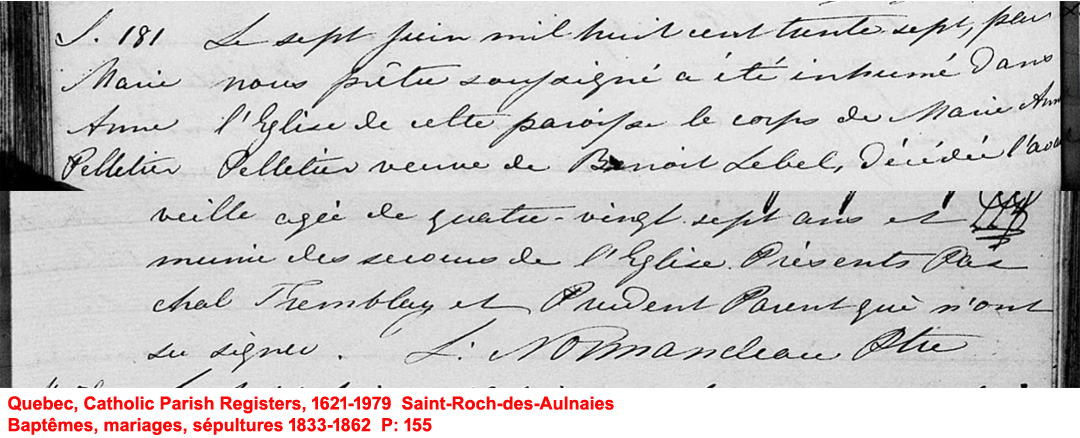 S. 181 Le sept juin mil huit cent trente sept, par
Marie nous prêtre soussigné a été inhumé dans
Anne l'Eglise de cette paroisse le corps de Marie Anne
Pelletier Pelletier veuve de Benoit Lebel, décédée l'avant
veille agée de quatre-vingt sept ans et
munie des secours de l'Eglise. Présents Pas
chal Tremblay et Prudent Parent qui n'ont
su signer. L: Normandeau Ptre
Quebec, Catholic Parish Registers, 1621-1979 Saint-Roch-des-Aulnaies
Baptêmes, mariages, sépultures 1833-1862 P: 155